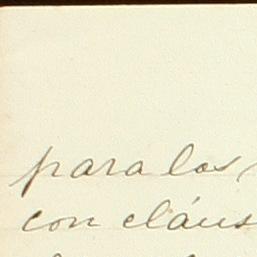 para los
con cláus